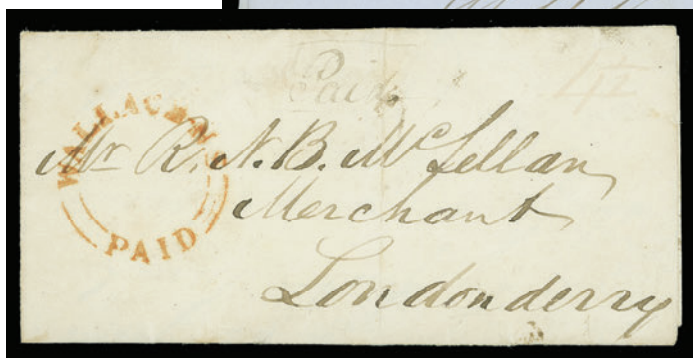 Paid
WALLACE N.S
PAID
Mr R. N. B. McLellan,
Merchant
Londonderry